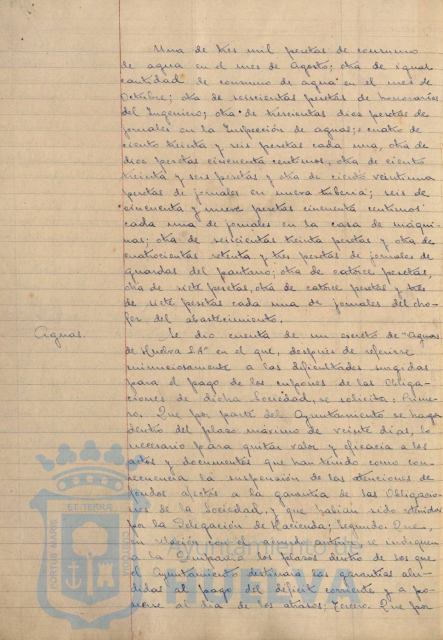 Una de tres mil pesetas de consumo
de agua en el mes de Agosto; otra de igual
cantidad de consumo de agua en el mes de
Octubre; otra de seiscientas pesetas de honorarios
del Ingeniero; otra de trescientas diez pesetas de
jornales en la Inspección de aguas; cuatro de
ciento treinta y seis pesetas cada una, otra de
diez pesetas cincuenta centimos, otra de ciento
treinta y seis pesetas y otra de ciento veintiuna
pesetas de jornales en nueva tuberia; seis de
cincuenta y nueve pesetas cincuenta centimos
cada una de jornales en la casa de máqui-
nas; otra de seiscientas treinta pesetas y otra de
cuatrocientas setenta y tres pesetas de jornales de
guardas del pantano; otra de catorce pesetas,
otra de siete pesetas, otra de catorce pesetas y tres
de siete pesetas cada una de jornales del cho-
fer del abastecimiento.
Aguas. Se dio cuenta de un escrito de "Aguas
de Huelva S.A" en el que, despues de referirse
minuciosamente a las dificultades surgidas
para el pago de los cupones de las Obliga-
ciones de dicha Sociedad, se solicita: Prime-
ro. Que por parte del Ayuntamiento se haga
dentro del plazo máximo de veinte dias, lo
necesario para quitar valor y eficacia a los
actos y documentos que han tenido como con-
secuencia la suspensión de las atenciones de
fondos afectos a la garantia de las Obligacio-
nes de la Sociedad, y que habian sido retenidos
por la Delegación de Hacienda; Segundo: Que,
en relación con el acuerdo anterior se indiquen
a la Compañia los plazos dentro de los que
el Ayuntamiento destinara las garantias alu-
didas al pago del déficit corriente y a po-
nerse al dia de los atrasos; Tercero. Que por
PORTUS MARIS ET TERRAE CUSTODIA
HUELVA